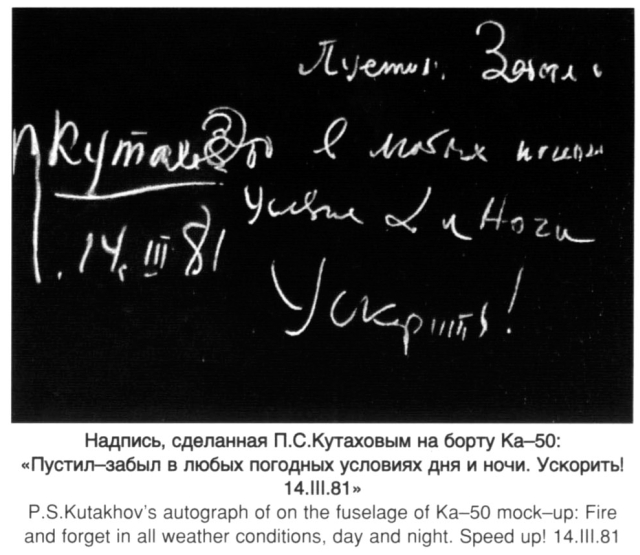 Пустил. Забыл
в любых погодн
условие Д и Ночи
Ускорить!
ПКутахов
14. III 81
Надпись, сделанная П.С.Кутаховым на борту Ка–50:
«Пустил–забыл в любых погодных условиях дня и ночи. Ускорить!
14.III.81»
P.S.Kutakhov's autograph of on the fuselage of Ka–50 mock–up: Fire
and forget in all weather conditions, day and night. Speed up! 14.III.81